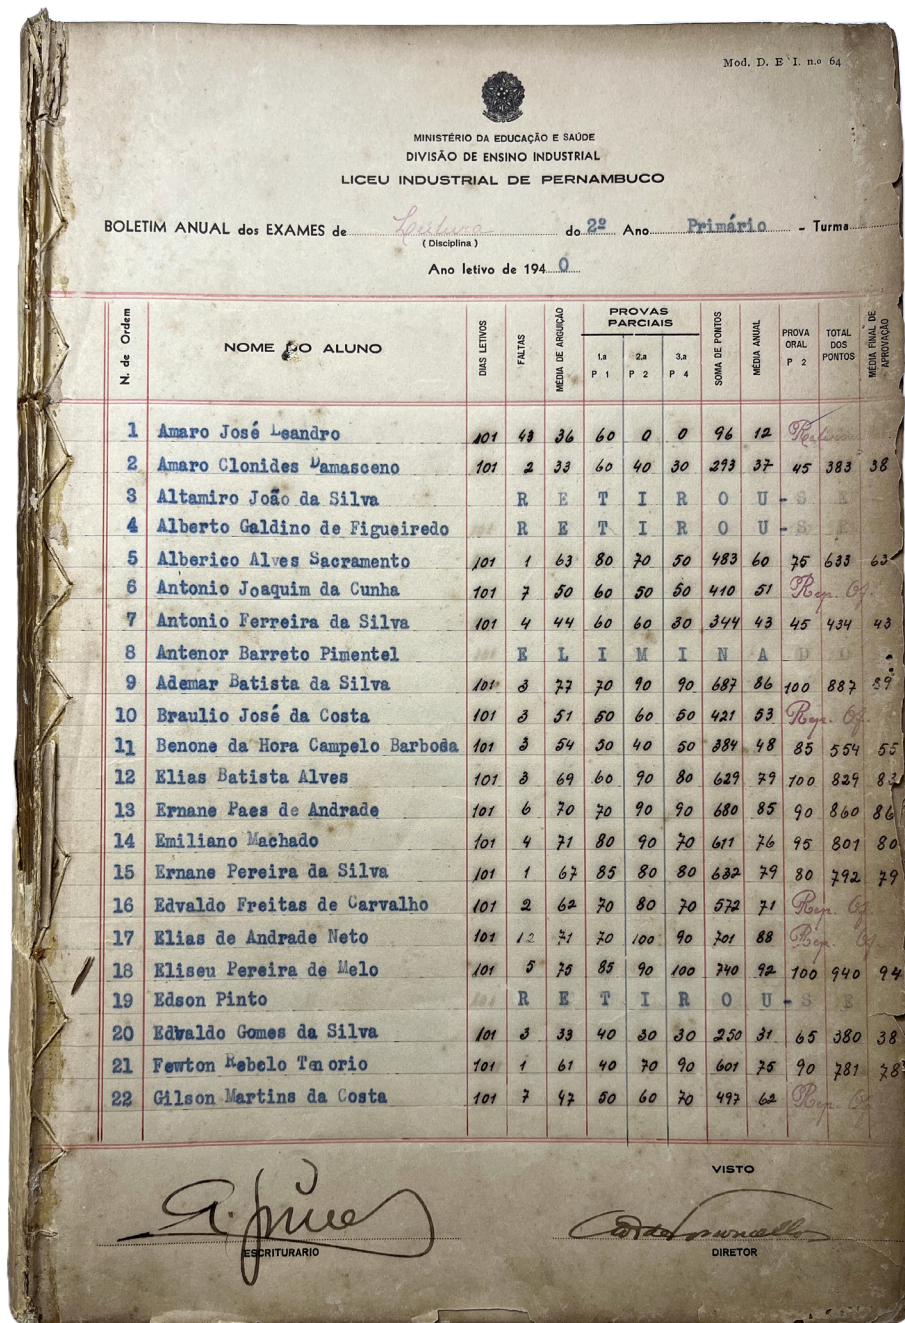 Mod. D. E. I. n.º 64
MINISTÉRIO DA EDUCAÇÃO E SAÚDE
DIVISÃO DE ENSINO INDUSTRIAL
LICEU INDUSTRIAL DE PERNAMBUCO
BOLETIM ANUAL dos EXAMES de Leitura do 2º Ano Primário - Turma
( Disciplina )
Ano letivo de 1940
N. de Ordem NOME DO ALUNO DIAS LETIVOS FALTAS MÉDIA DE ARGUIÇÃO PROVAS PARCIAIS 1.a P 1 2.a P 2 3.a P 4 SOMA DE PONTOS MÉDIA ANUAL PROVA ORAL P 2 TOTAL DOS PONTOS MÉDIA FINAL DE APROVAÇÃO
1 Amaro José Leandro 101 43 36 60 0 0 96 12
2 Amaro Clonides Damasceno 101 2 33 60 40 30 293 37 45 383 38
3 Altamiro João da Silva R E T I R O U - S E
4 Alberto Galdino de Figueiredo R E T I R O U - S E
5 Alberico Alves Sacramento 101 1 63 80 70 50 483 60 75 633 63
6 Antonio Joaquim da Cunha 101 7 50 60 50 50 410 51 Rep. Of.
7 Antonio Ferreira da Silva 101 4 44 60 60 30 344 43 45 434 43
8 Antenor Barreto Pimentel E L I M I N A D O
9 Ademar Batista da Silva 101 3 77 70 90 90 687 86 100 887 89
10 Braulio José da Costa 101 3 51 50 60 50 421 53 Rep. Of.
11 Benone da Hora Campelo Barbosa 101 3 54 50 40 50 384 48 85 554 55
12 Elias Batista Alves 101 3 69 60 90 80 629 79 100 829 83
13 Ernane Paes de Andrade 101 6 70 70 90 90 680 85 90 860 86
14 Emiliano Machado 101 4 71 80 90 70 611 76 95 801 80
15 Ernane Pereira da Silva 101 1 67 85 80 80 632 79 80 792 79
16 Edvaldo Freitas de Carvalho 101 2 62 70 80 70 572 71 Rep. Of.
17 Elias de Andrade Neto 101 12 71 70 100 90 701 88 Rep. Of.
18 Eliseu Pereira de Melo 101 5 75 85 90 100 740 92 100 940 94
19 Edson Pinto R E T I R O U - S E
20 Edvaldo Gomes da Silva 101 3 33 40 30 30 250 31 65 380 38
21 Fewton Rebelo Tenorio 101 1 61 40 70 90 601 75 90 781 78
22 Gilson Martins da Costa 101 7 47 50 60 70 497 62 Rep. Of.
VISTO
ESCRITURARIO
DIRETOR